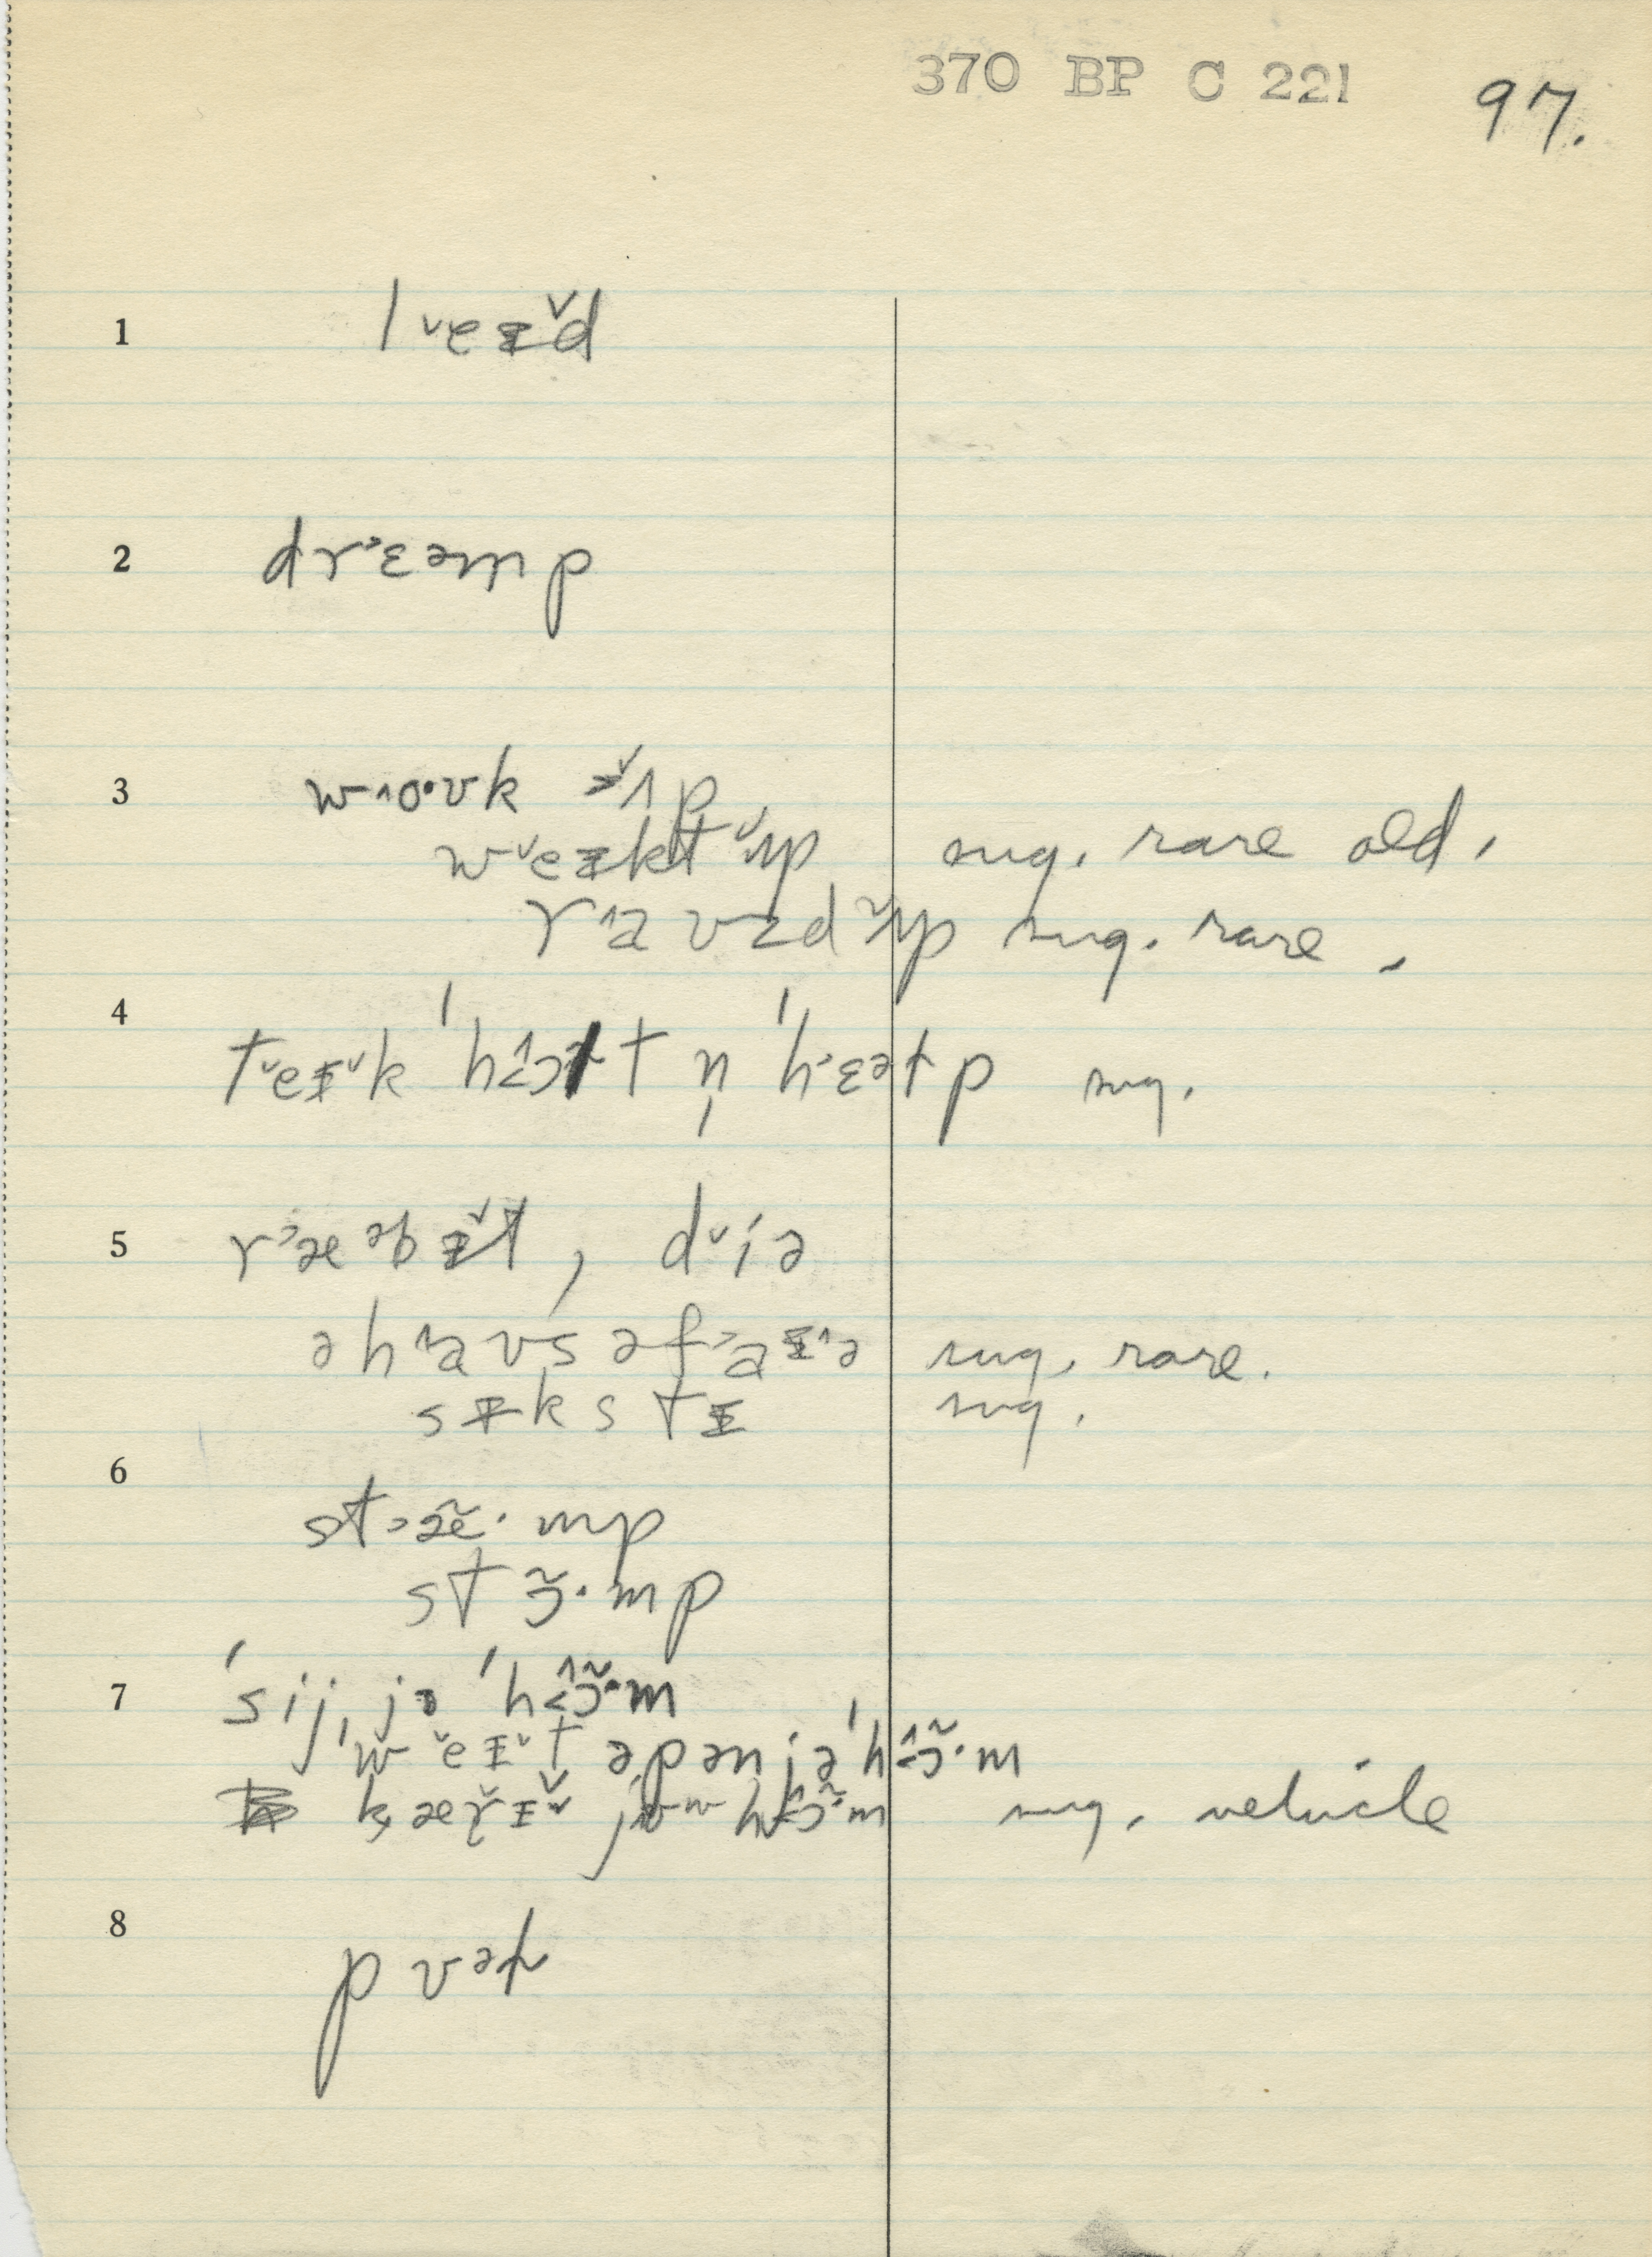 370 BP C 221 97.
1 l ˅eɪ˅d
2 dr˃ɛəmp
3 w˄o·ʊk ʌ˅p
w˅eɪkt ʌ˅p sug. rare old.
r˄aʊzd ʌ˅p sug. rare.
4 t˅eɪ˅k ˈhɔ˄t n̩ ˈh˃ɛətp sug.
5 r˃æəbɪ˅t, d˅iə
ə h˄aʊs əf˃aɪ˄ə sug. rare.
sɪkstɪ sug.
6 st˃æ̃·mp
stɔ̃·mp
7 ˈsij jə ˈhɔ̃˄·m
ˈw˅eɪ˅t əpən jə ˈhɔ̃˄·m
kæɾɪ˅ jʊ hɔ̃˄·m sug. vehicle
8 pʊə